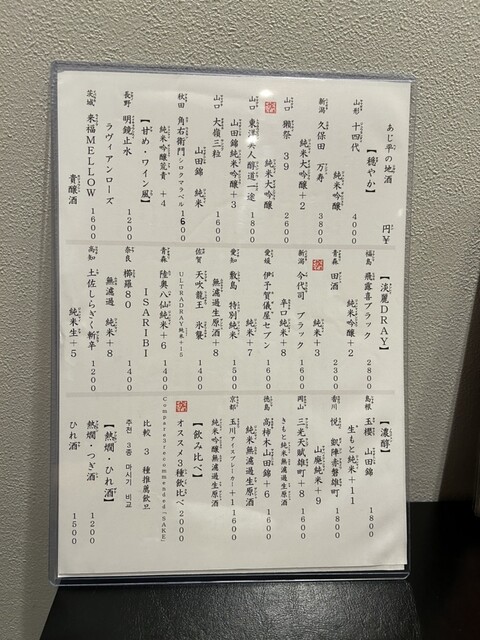 あじ平の地酒 円¥
【穏やか】
山形 十四代 純米吟醸 4000
新潟 久保田 万寿 純米大吟醸+2 3800
山口 獺祭 39 純米大吟醸 2600
山口 東洋美人醇道一途 1800
山田錦純米吟醸+3
山口 大嶺三粒 山田錦 純米 1600
秋田 角右衛門シックマラベル 1600
純米吟醸荒責 +4
【甘め・ワイン風】
長野 明鏡止水 ラヴィアンローズ 1200
茨城 来福MELLOW 1600
貴醸酒
【淡麗DRAY】
福島 飛露喜ブラック 2800
純米吟醸+2
青森 田酒 純米+3 2300
新潟 今代司 ブラック 1600
辛口純米+8
愛媛 伊予賀儀屋セブン 1600
純米+7
愛知 敷島 特別純米 1500
無濾過生原酒+8
佐賀 天吹龍王 氷饗 1400
ULTRADRAY純米+15
青森 陸奥八仙純米+6 1400
ISARIBI
奈良 櫛羅80 無濾過 純米+8 1200
高知 土佐しらぎく斬辛 1400
純米生+5
【濃醇】
島根 玉櫻 山田錦 1800
生もと純米+11
香川 悦 凱陣赤磐雄町 1800
山廃純米+9
岡山 三光天賦雄町+8 1600
きもと純米無濾過生原酒
徳島 高柿木山田錦+6 1600
純米無濾過生原酒
京都 玉川アイスブレーカー+1 1600
純米吟醸無濾過生原酒
【飲み比べ】
オススメ3種飲比べ2000
Compare3recommended「SAKE」
比較 3 種推薦飲品
추천 3종 마시기 비교
【熱燗・ひれ酒】
熱燗・つぎ酒 1200
ひれ酒 1500